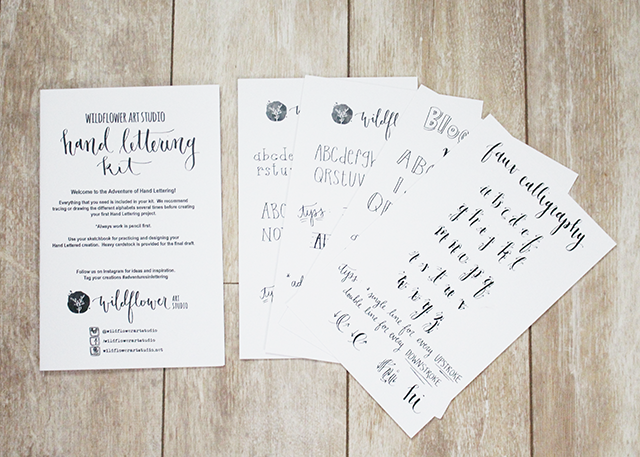 WILDFLOWER ART STUDIO
hand lettering
kit
Welcome to the Adventure of Hand Lettering!
Everything that you need is included in your kit. We recommend
tracing or drawing the different alphabets several times before creating
your first Hand Lettering project.
*Always work is pencil first.
Use your sketchbook for practicing and designing your
Hand Lettering creation. Heavy cardstock is provided for the final draft.
Follow us on Instagram for ideas and inspiration.
Tag your creations #adventuresinlettering
wildflower ART
STUDIO
@wildflowerartstudio
/wildflowerartstudio
wildflowerartstudio.art
abcdef
rstuv
ABC
NO
tips
*ad
wildf
ABCDEFG
QRSTUV
tips
AF
Bloc
AB
QR
tips
faux calligraphy
a b c d e f
g h i j k l
m n o p q
r s t u v
w x y z
*single line for every UPSTROKE
double line for every DOWNSTROKE
hi